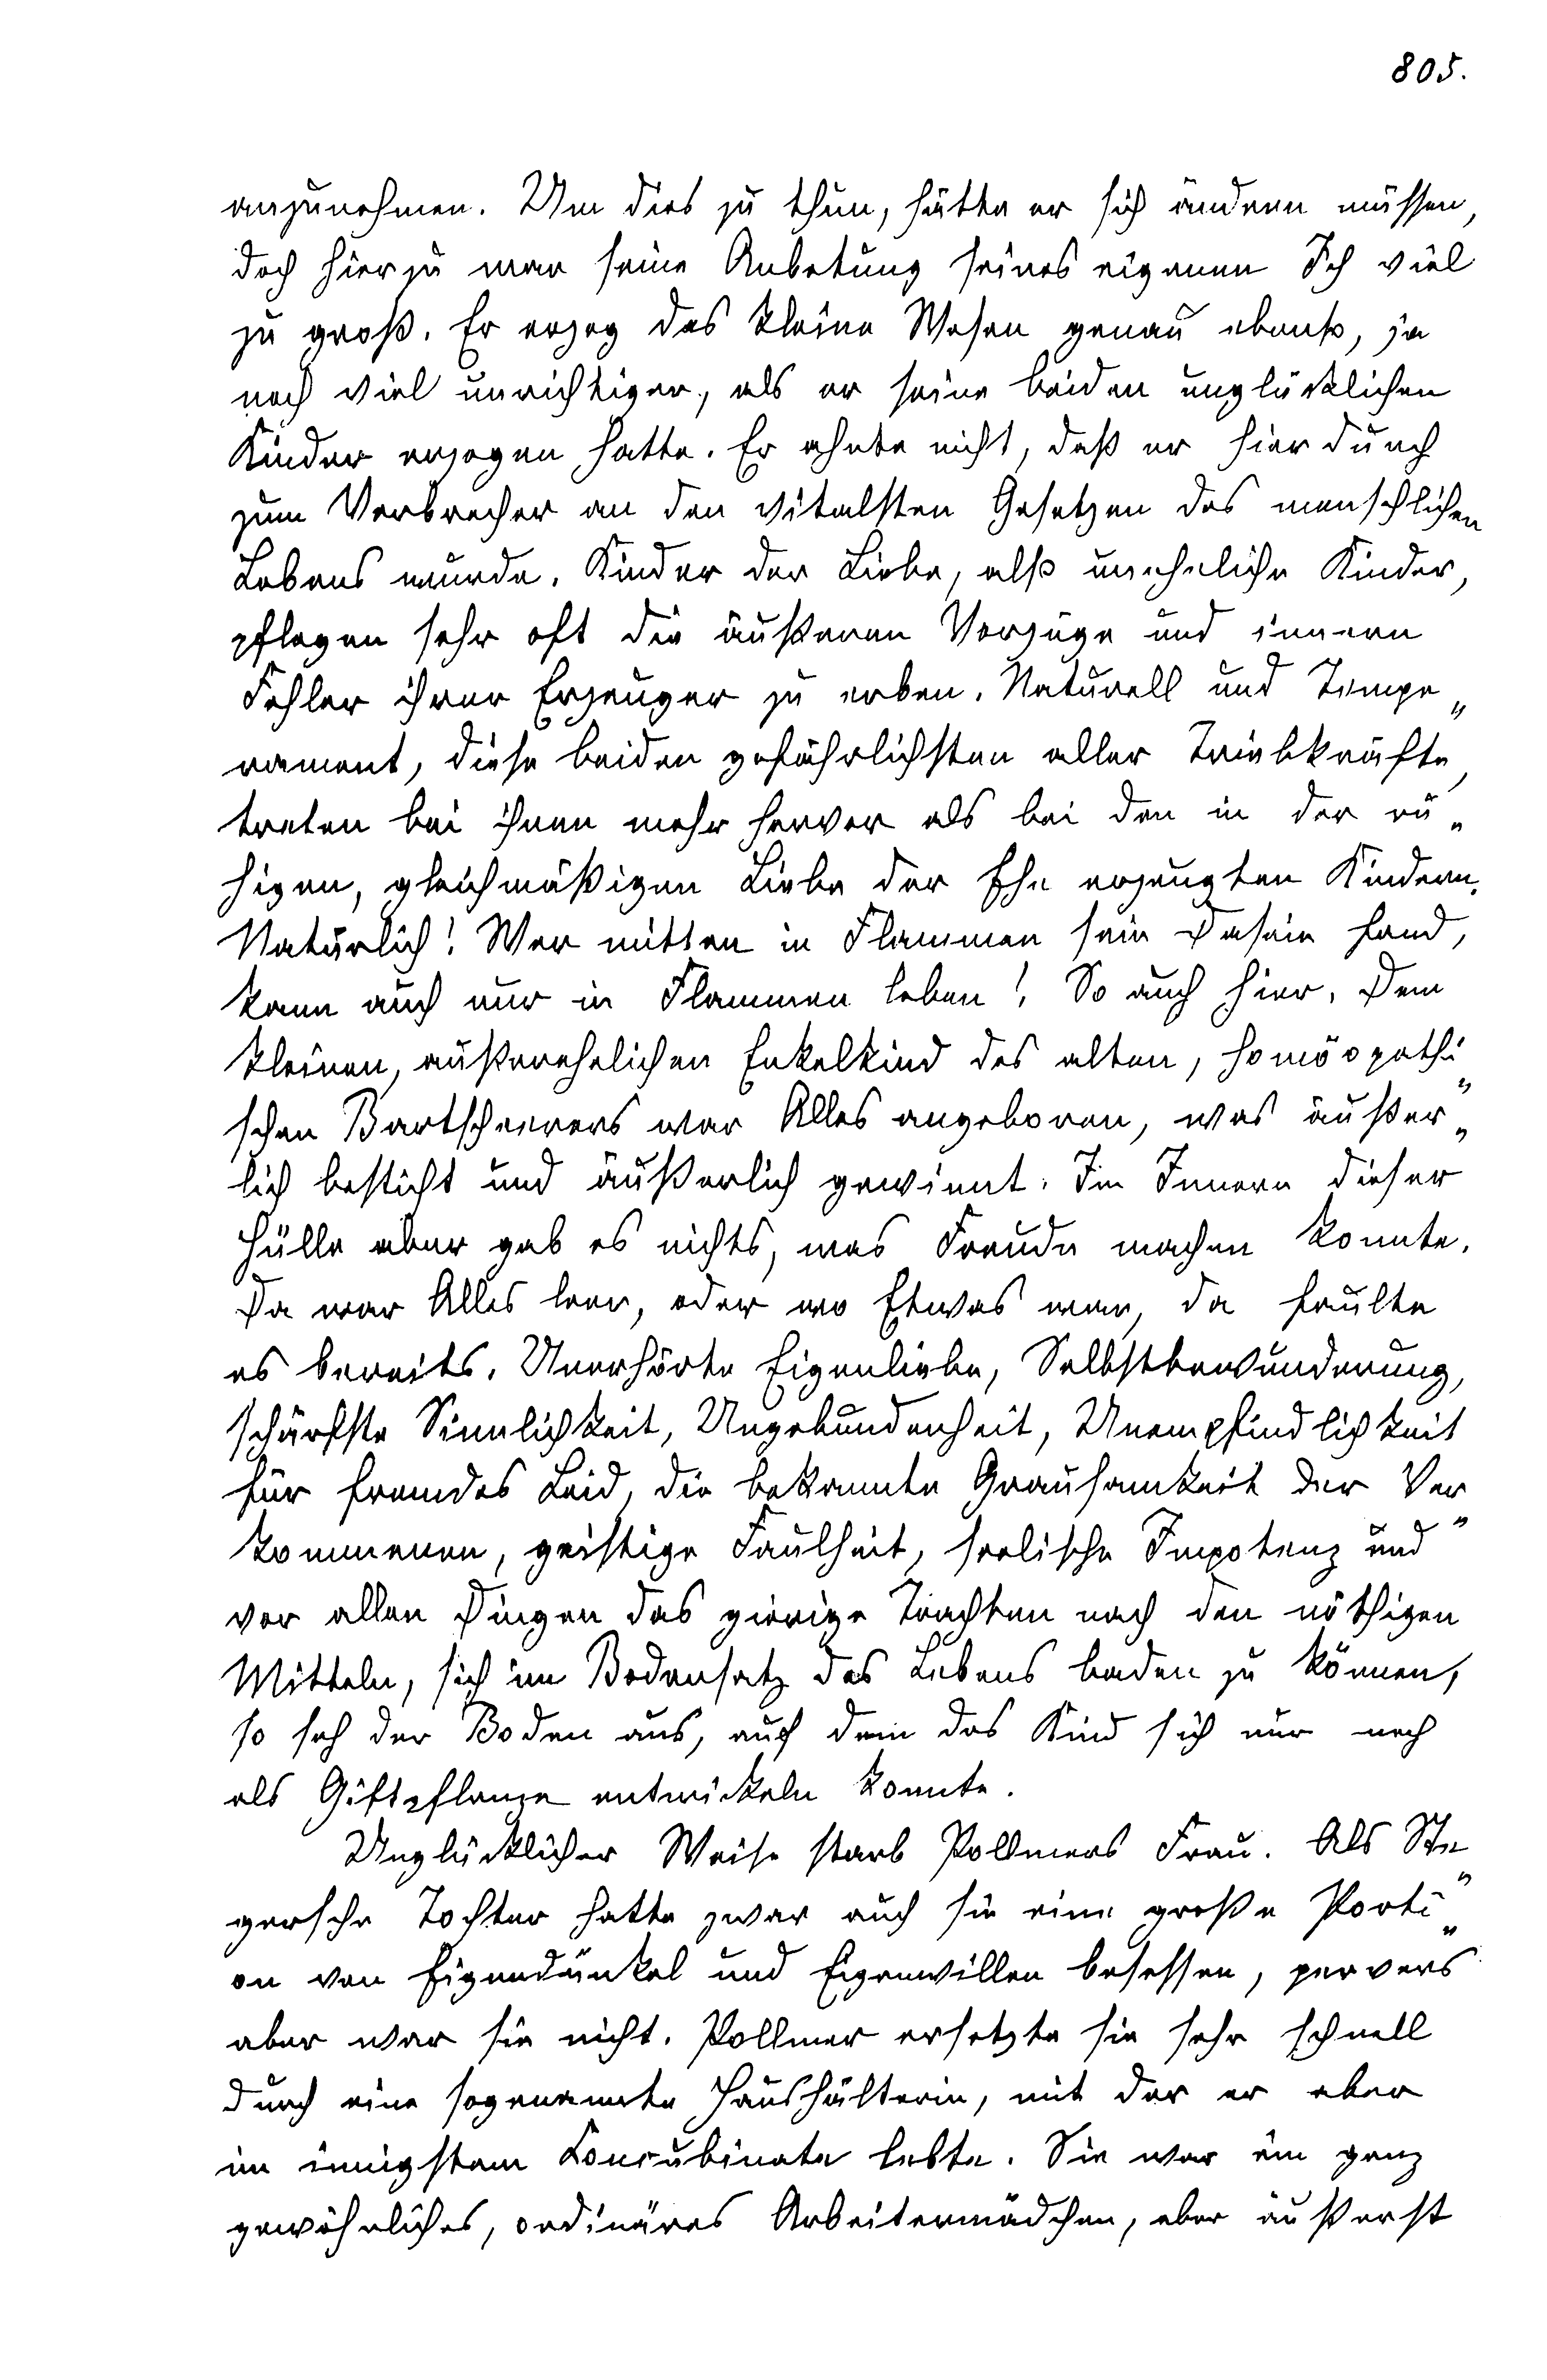 805.
anzunehmen. Um dies zu thun, hätte er sich ändern müssen,
doch hierzu war seine Anbetung seines eigenen Ich viel
zu groß. Er erzog das kleine Wesen genau ebenso, ja
noch viel unrichtiger, als er seine beiden unglücklichen
Kinder erzogen hatte. Er ahnte nicht, daß er hierdurch
zum Verbrecher an den vitalsten Gesetzen des menschlichen
Lebens wurde. Kinder der Liebe, also uneheliche Kinder,
pflegen sehr oft die äußeren Vorzüge und innern
Fehler ihrer Erzeuger zu erben. Naturell und Tempe„
rament, diese beiden gefährlichsten aller Triebkräfte,
treten bei ihnen mehr hervor als bei den in der ru„
higen, gleichmäßigen Liebe der Ehe erzeugten Kindern.
Natürlich! Wer mitten in Flammen sein Dasein fand,
kann auch nur in Flammen leben! So auch hier. Dem
kleinen, außerehelichen Enkelkind des alten, homöopathi„
schen Bartscheerers war Alles angeboren, was äußer„
lich besticht und äußerlich gewinnt. Im Innern dieser
Hülle aber gab es nichts, was Freude machen konnte.
Da war Alles leer, oder wo Etwas war, da faulte
es bereits. Unerhörte Eigenliebe, Selbstbewunderung,
schärfste Sinnlichkeit, Ungebundenheit, Unempfindlichkeit
für fremdes Leid, die bekannte Grausamkeit der Ver„
kommenen, geistige Faulheit, seelische Impotenz und
vor allen Dingen das gierige Trachten nach den nöthigen
Mitteln, sich im Bodensatz des Lebens baden zu können,
so sah der Boden aus, auf dem das Kind sich nur noch
als Giftpflanze entwickeln konnte.
Unglücklicher Weise starb Pollmers Frau. Als Ste„
gersche Tochter hatte zwar auch sie eine große Porti„
on von Eigendünkel und Eigenwillen besessen, pervers
aber war sie nicht. Pollmer ersetzte sie sehr schnell
durch eine sogenannte Haushälterin, mit der er aber
im innigstem Concubinate lebte. Sie war ein ganz
gewöhnliches, ordinäres Arbeitermädchen, aber äußerst